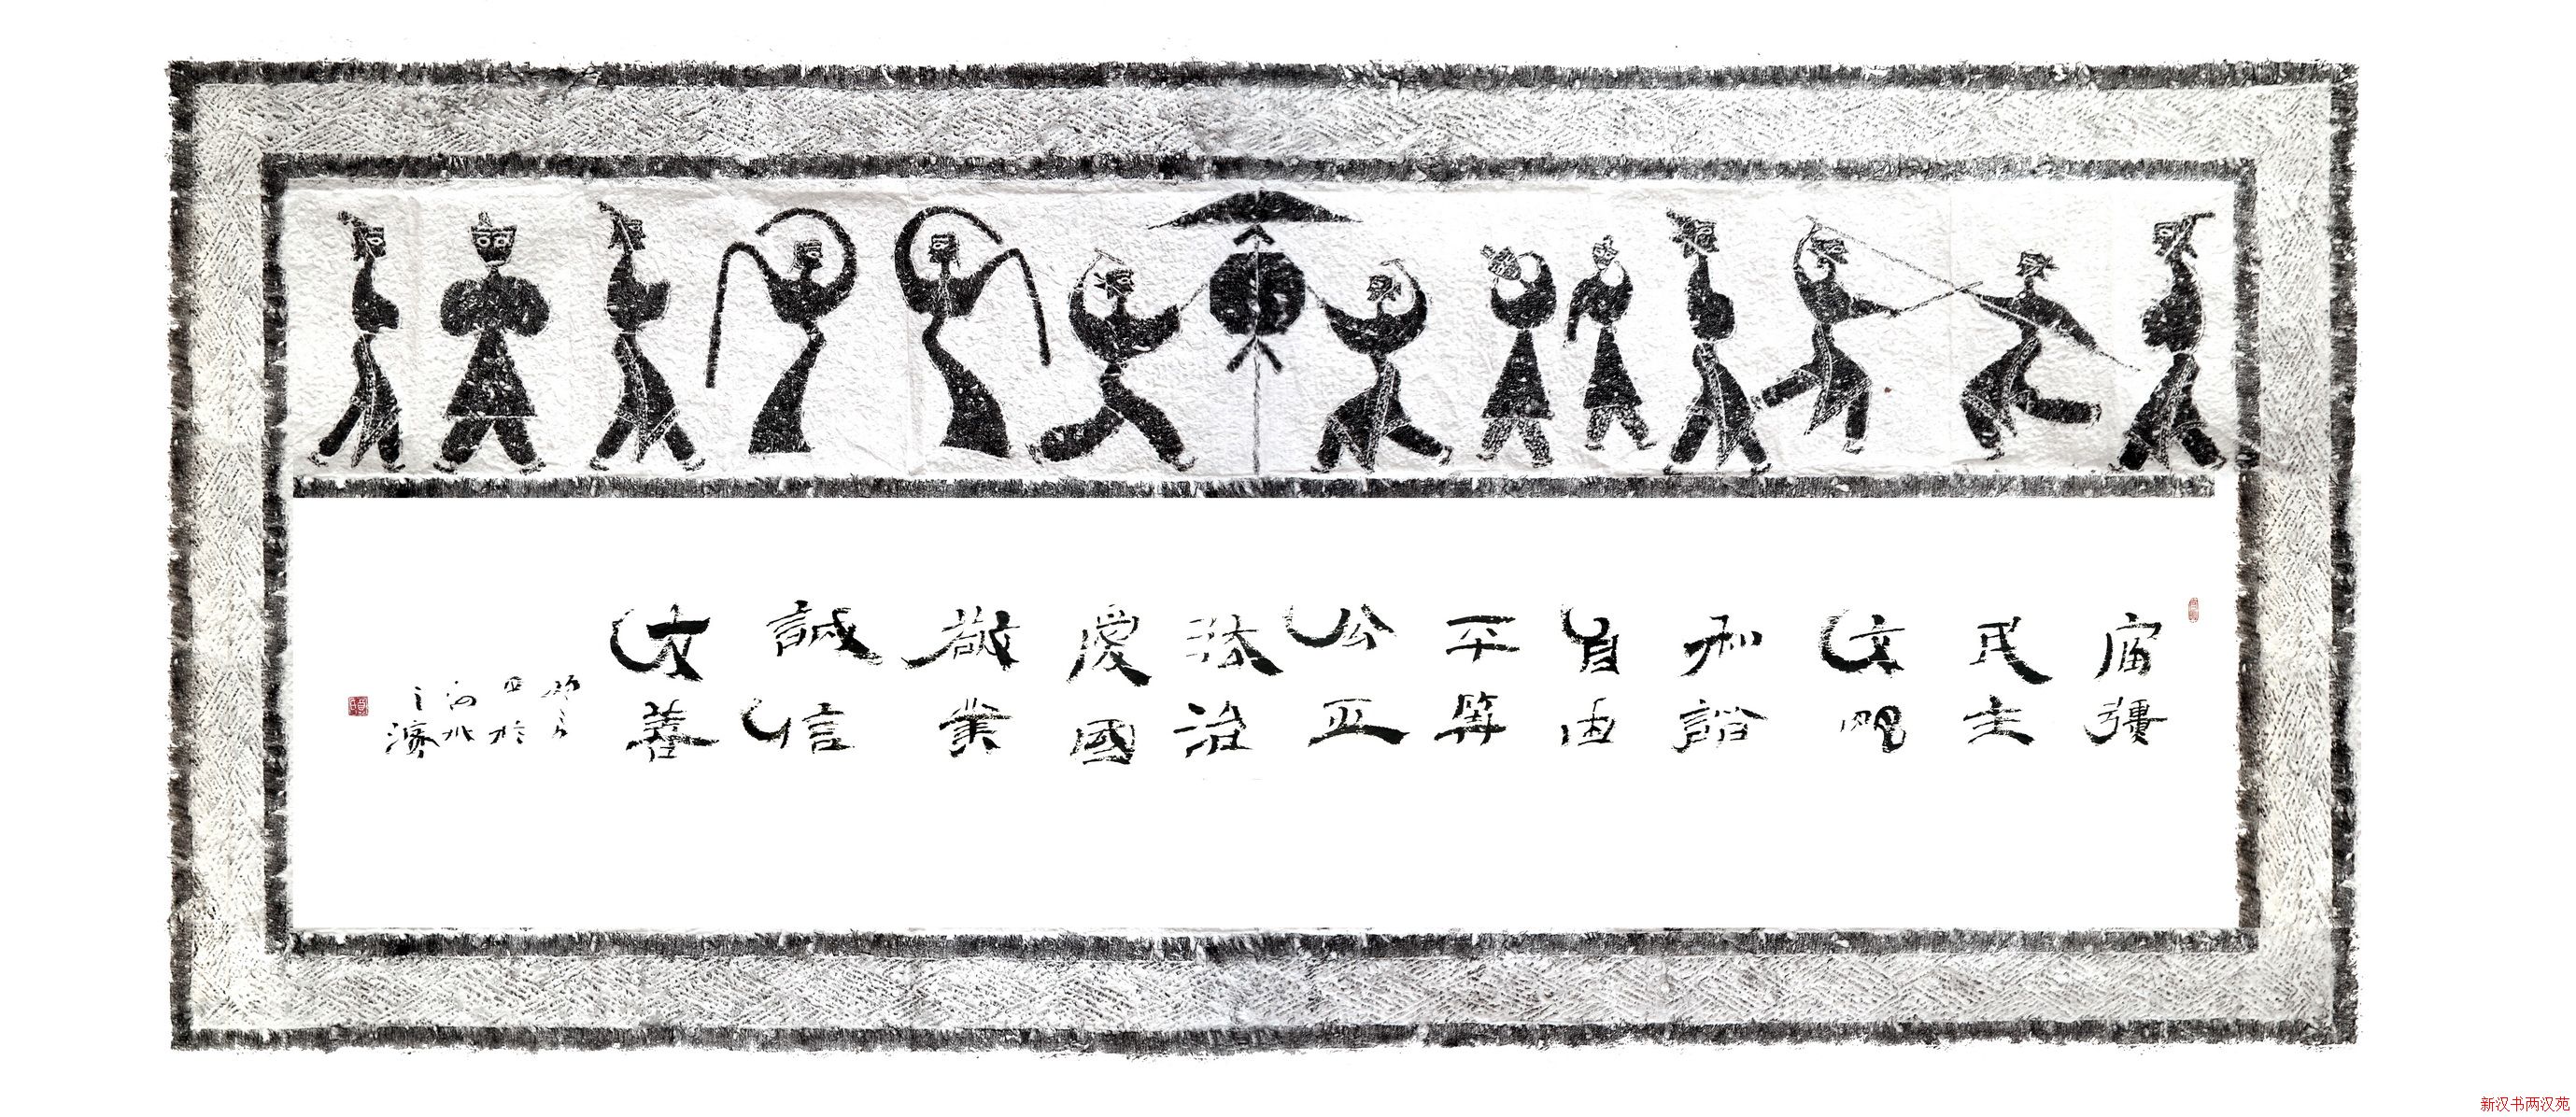 富彊
民主
文明
和諧
自由
平等
公正
法治
愛國
敬業
誠信
友善
新汉书两汉苑